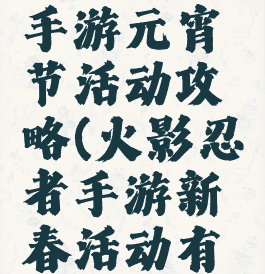 手游元宵
节活动攻
略(火影忍
者手游新
春活动有